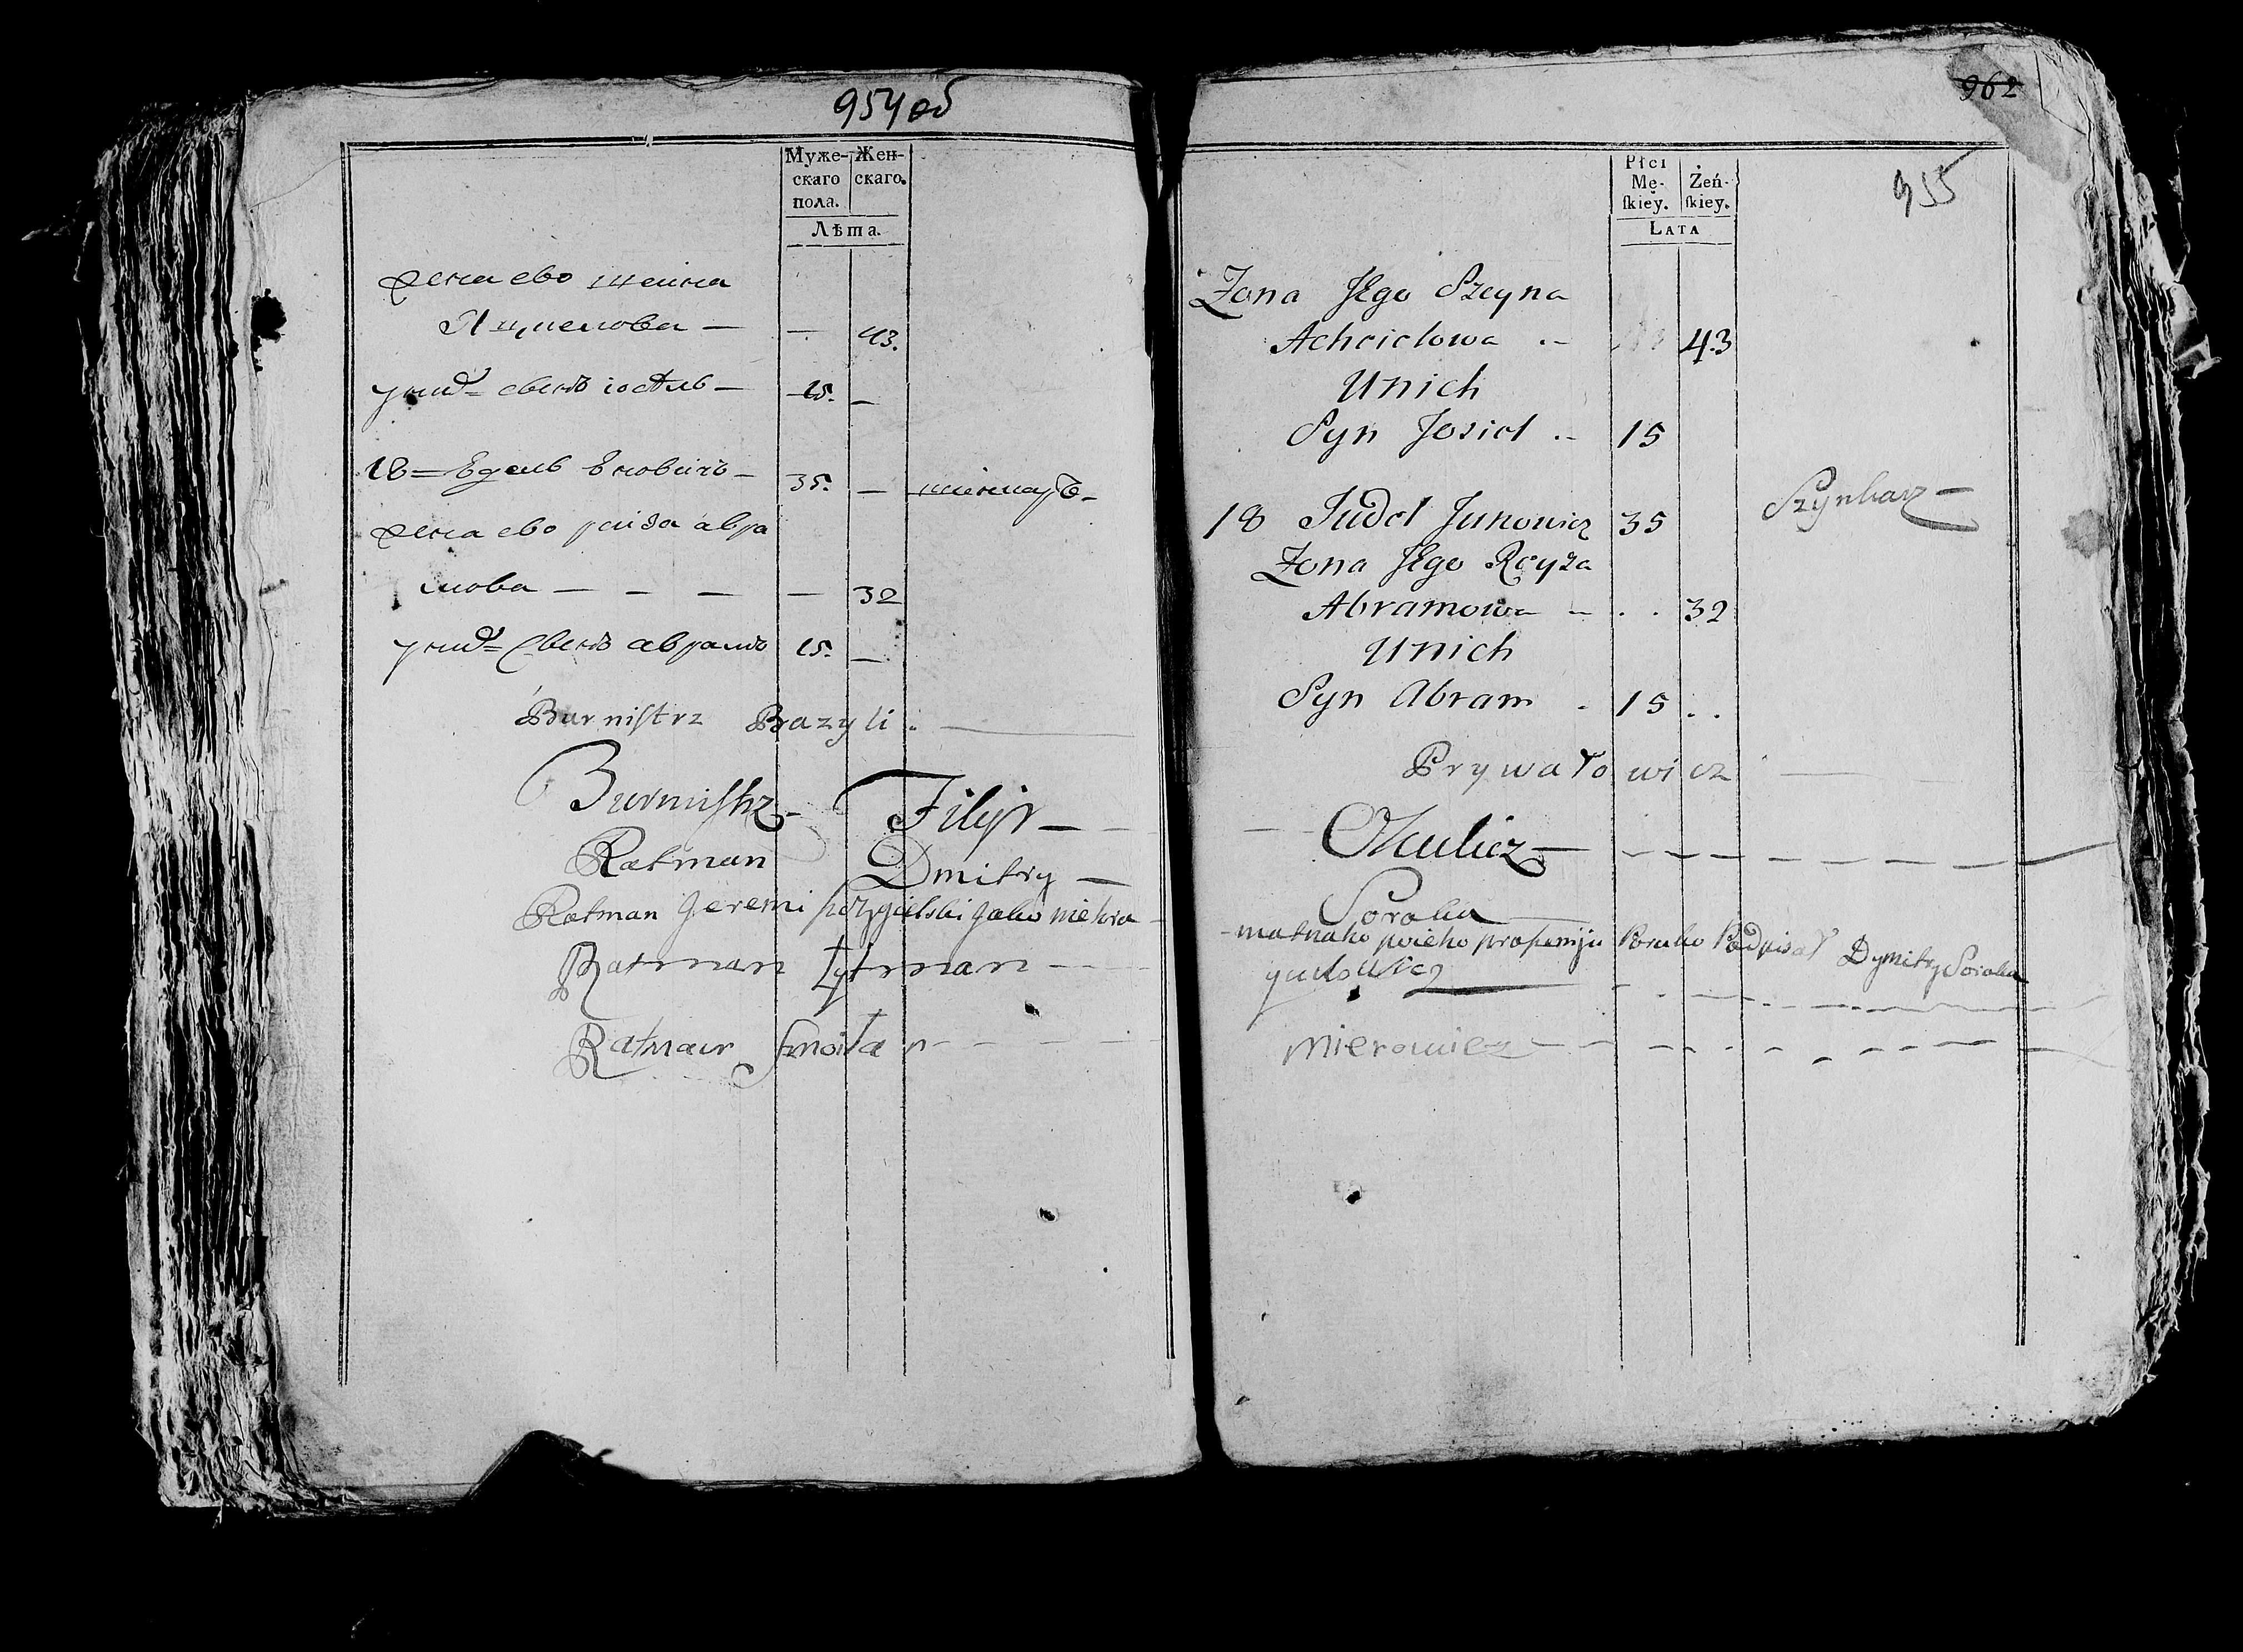 954 об
Муже-
скаго
пола.
Жен-
скаго.
Лѣта.
жена ево шейна
43.
у нихъ сынъ іосель —
15. —
18 = Юдель Юновичъ —
35. — шинкаръ —
жена ево рейза абра
мова — — — — — 32
у нихъ сынъ абрамъ 15. —
Burmistrz Bazyli
Burmistrz — Filip —
Ratman Dmitry —
Ratman Jeremi jako niehra
Ratman
Ratman
962
955
Płci
Mę-
ſkiey.
Żeń-
ſkiey.
Lata
Zona Jego Szeyna
43
Unich
Syn Josiel .. 15
18 Judel Junowicz 35 Szynkarz —
Zona Jego Reyza
Abramowa — . . 32
Unich
Syn Abram . 15 . .
Prywatowicz
Okulicz —
Soroka
-motnaho joieho Podpisał Dymitry Soroka
Mierowicz